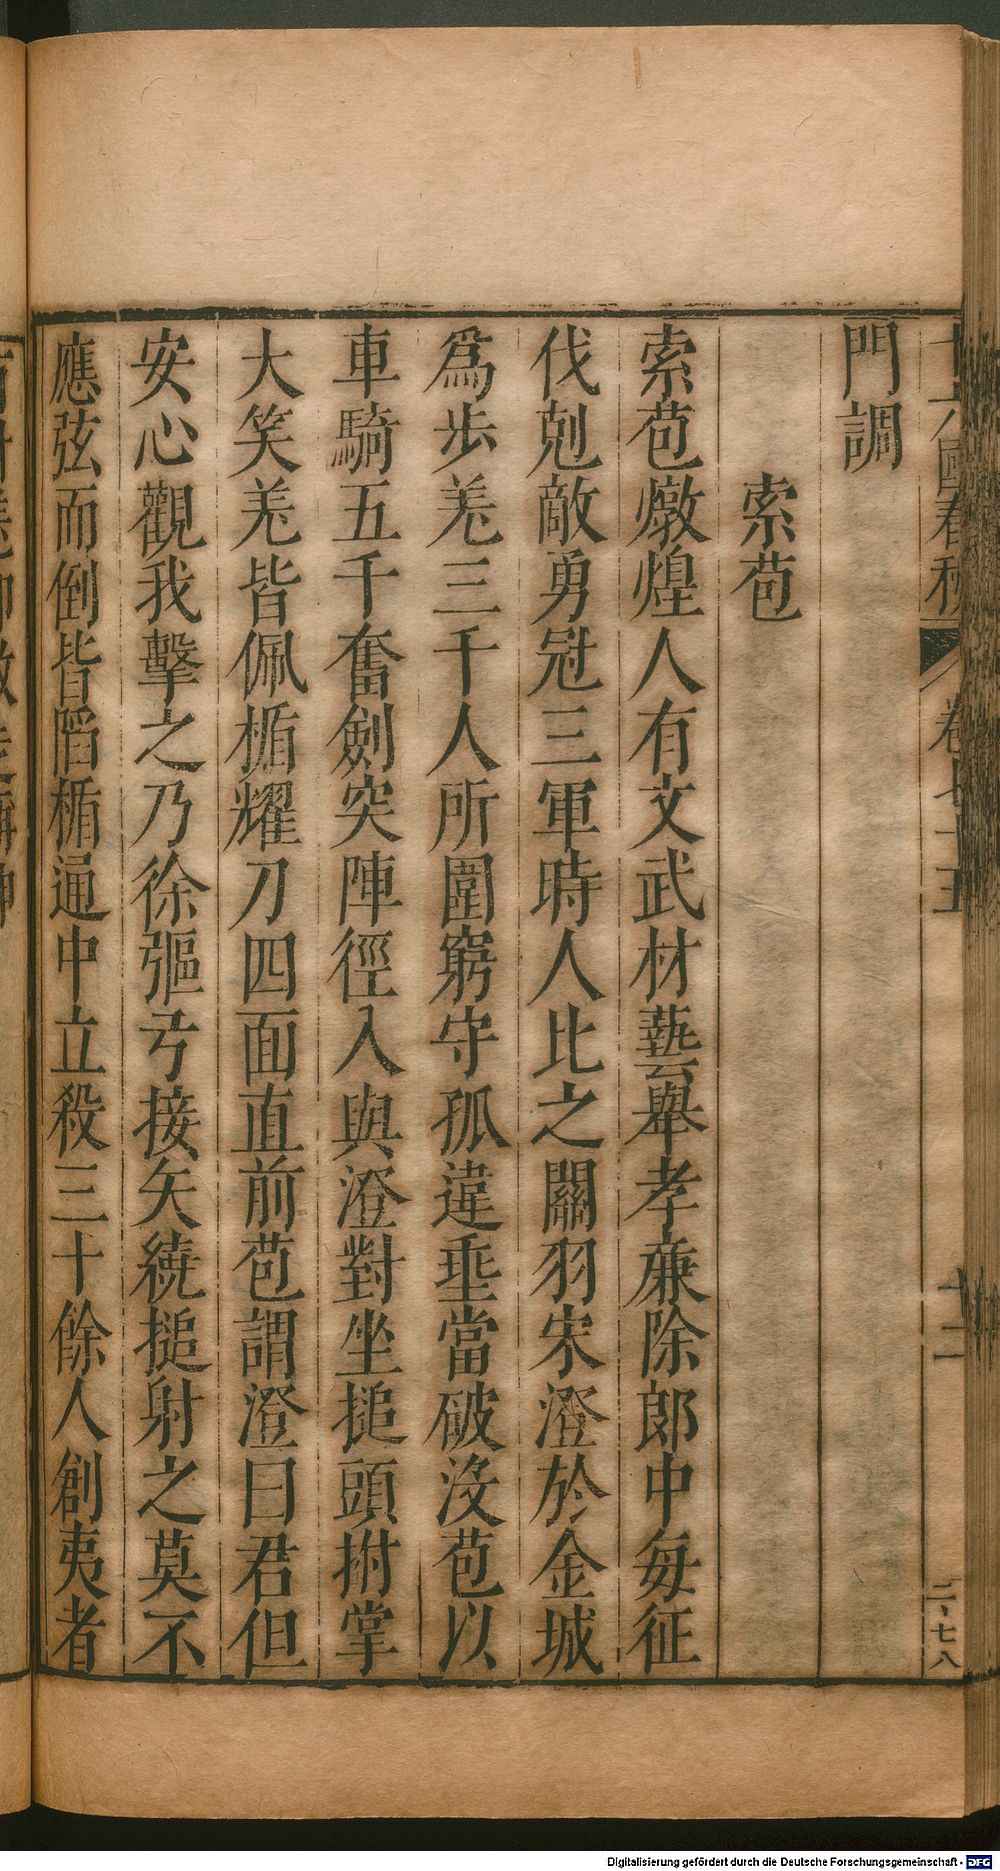 十六國春秋 卷七十五 十二 二百七八
門調
索苞
索苞燉煌人有文武材藝舉孝亷除郎中每征
伐剋敵勇冠三軍時人比之關羽宋澄於金城
爲步羌三千人所圍窮守孤違垂當破沒苞以
車騎五千奮劍突陣徑入與澄對坐搥頭拊掌
大笑羌皆佩楯耀刀四面直前苞謂澄曰君但
安心觀我擊之乃徐彄弓接矢繞搥射之莫不
應弦而倒皆䧟楯通中立殺三十餘人創夷者
Digitalisierung gefördert durch die Deutsche Forschungsgemeinschaft - DFG